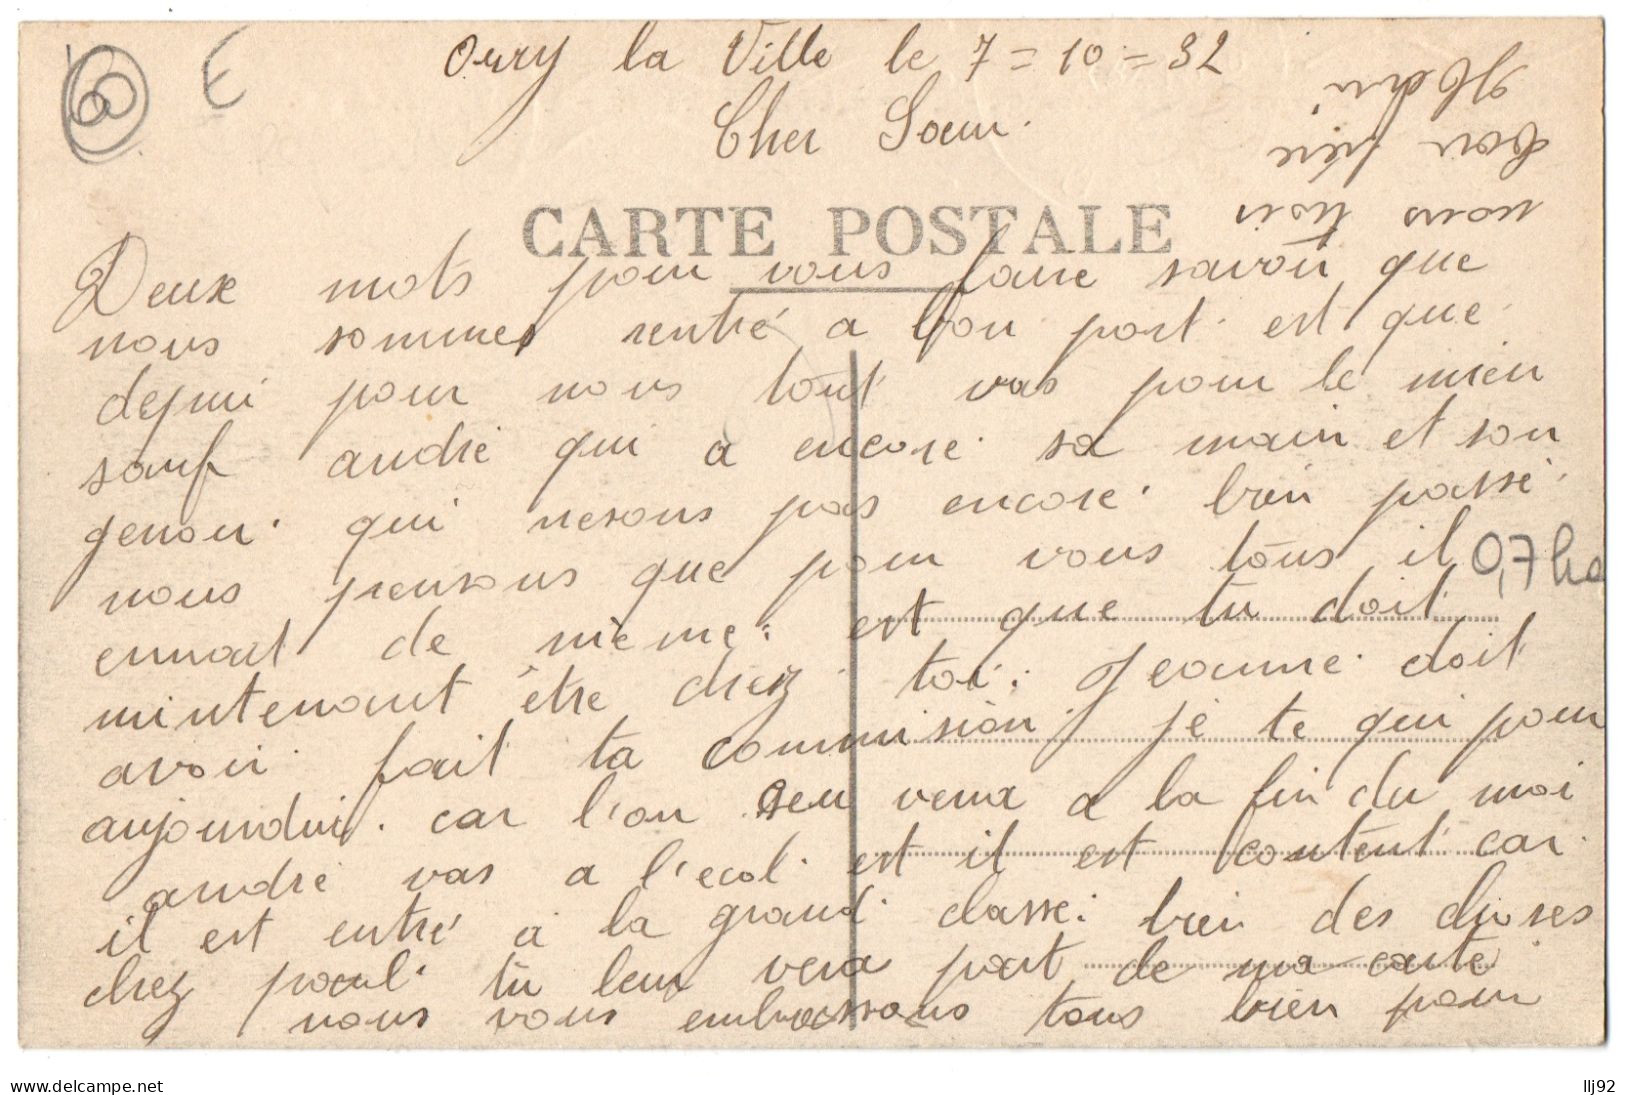 60 E
Orry la Ville le 7=10=32
Cher Soeur.
CARTE POSTALE
Deux mots pour vous faire savoir que
nous sommes rentré a bon port. est que
depui pour nous tout vas pour le mieu
sauf andré qui a encore sa main et son
genou. qui nesons pas encore. bien passé.
nous pensons que pour vous tous il
ennest de mème. est que tu doit
mintenant être chez toi. Jeanne doit
avoir fait ta commision. je te qui pour
aujourdui. car l'on seu veux a la fin du moi
andré vas a l'écol. est il est content car.
il est entré a la grand. classe. bien des choses
chez paul. tu leur vera part de ma carte
nous vous embrassons tous bien pour
nous trois
ton frère
Henri
0,7 ha
www.delcampe.net
llj92